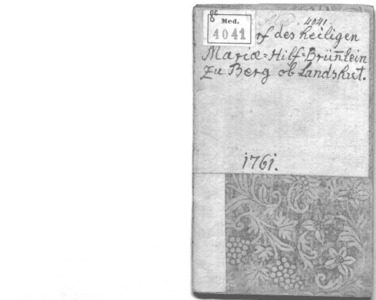 Med.
4041
4041.
rf des heiligen
Mariæ=Hilf=Brün̄lein
zu Berg ob Landshut.
1761.